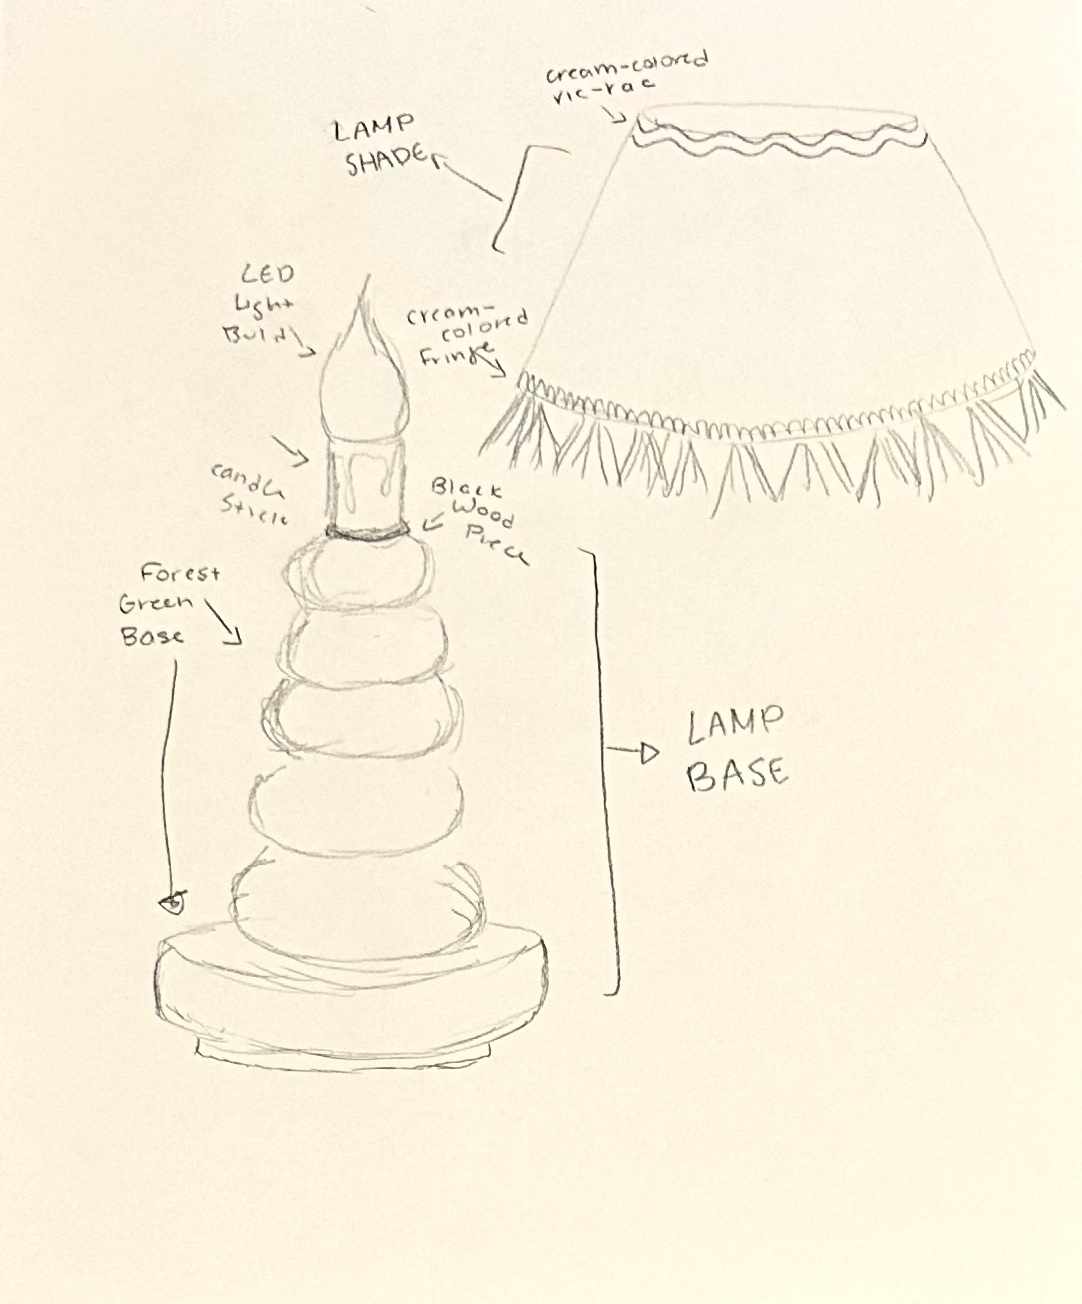 cream-colored
ric-rac
LAMP
SHADE
LED
Light
Bulb
cream-
colored
Fringe
candle
Stick
Black
Wood
Piece
Forest
Green
Base
LAMP
BASE